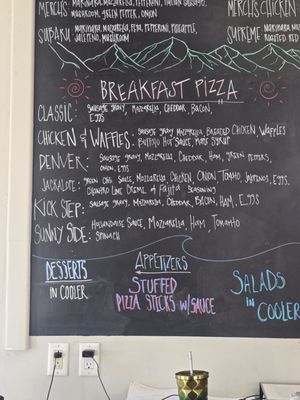 MERCHS: MARINARA, MOZZARELLA, PEPPERONI, ITALIAN SAUSAGE,
MUSHROOM, GREEN PEPPER, ONION
SUBARU: MARINARA, MOZZARELLA, HAM, PEPPERONI, PINEAPPLE,
JALAPENO, MUSHROOM
MERCHS CHICKEN
SUPREME: MARINARA, MOZZ
ROASTED RED
BREAKFAST PIZZA
CLASSIC: SAUSAGE GRAVY, MOZZARELLA, CHEDDAR, BACON,
EGGS
CHICKEN & WAFFLES: SAUSAGE GRAVY, MOZZARELLA, BREADED CHICKEN, WAFFLES
BUFFALO HOT SAUCE, MAPLE SYRUP
DENVER: SAUSAGE GRAVY, MOZZARELLA, CHEDDAR, HAM, GREEN PEPPERS,
ONION, EGGS
JACKALOPE: GREEN CHILI SAUCE, MOZZARELLA, CHICKEN, ONION, TOMATO, JALAPENOS, EGGS,
LIME CREME & FAJITA SEASONING
KICK STEP: SAUSAGE GRAVY, MOZZARELLA, CHEDDAR, BACON, HAM, EGGS
SUNNY SIDE: HOLLANDAISE SAUCE, MOZZARELLA, HAM, TOMATO
SPINACH
DESSERTS
IN COOLER
APPETIZERS
STUFFED
PIZZA STICKS W/SAUCE
SALADS
IN
COOLER